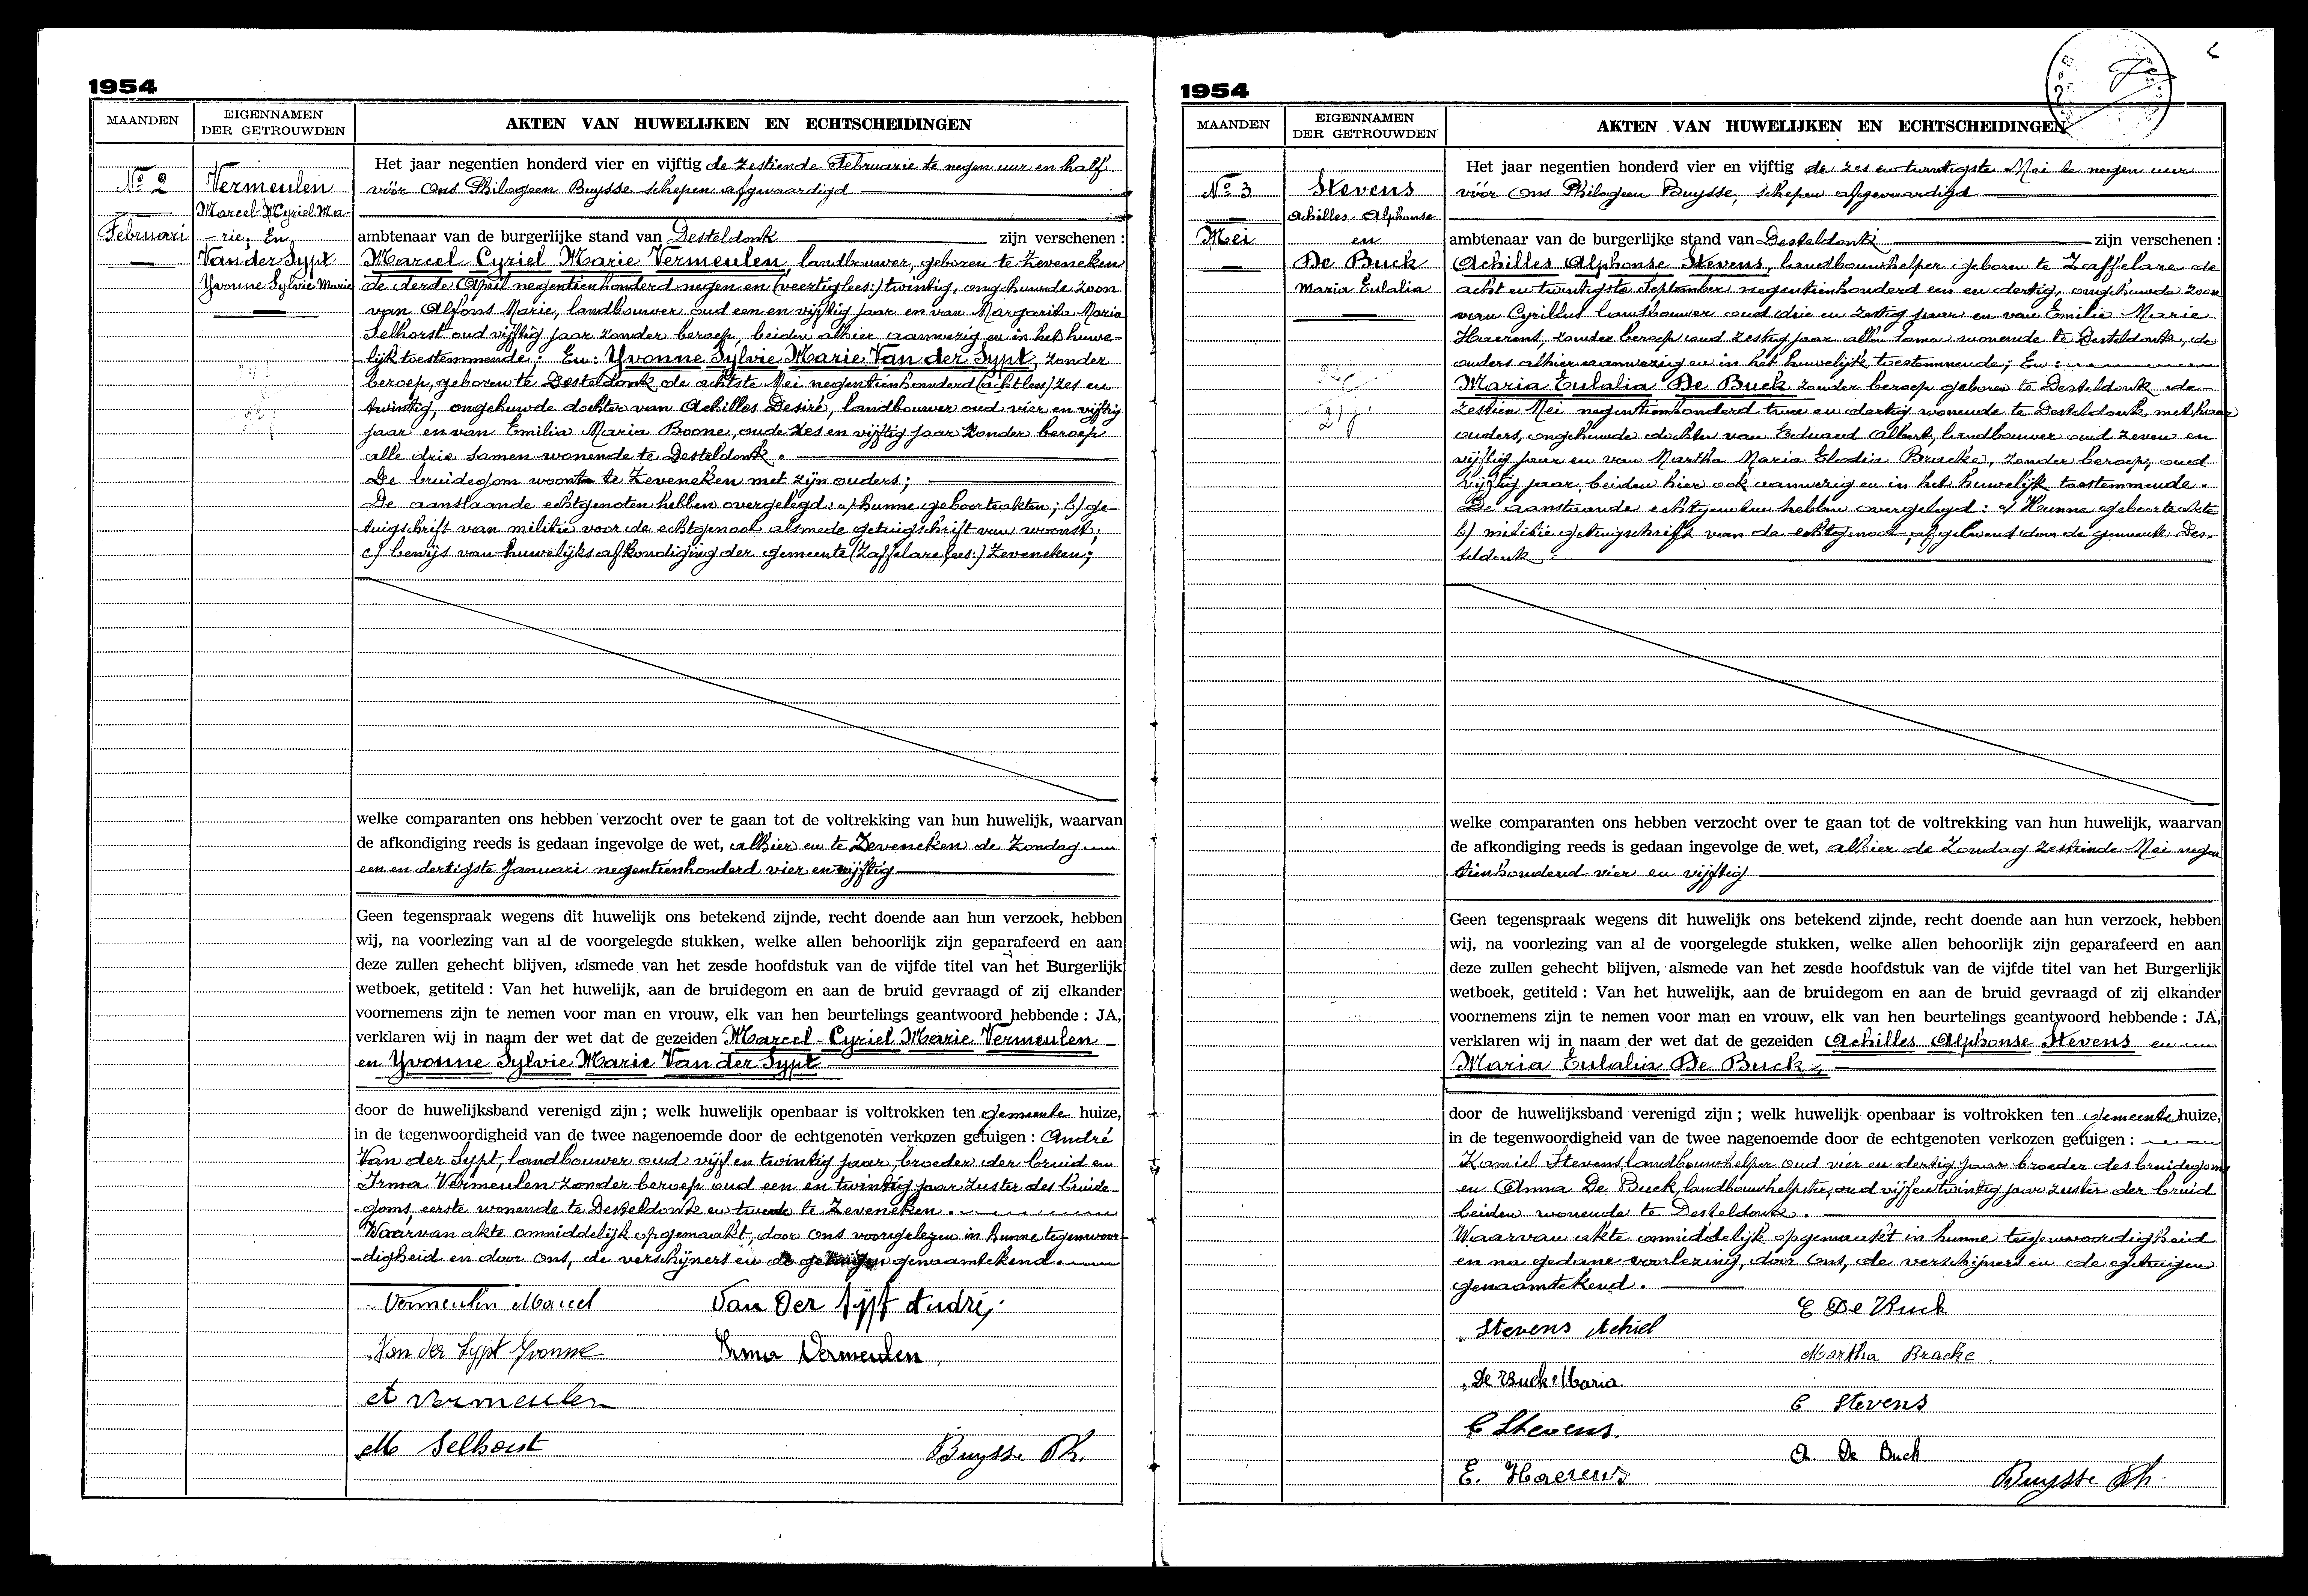 1954
MAANDEN
EIGENNAMEN
DER GETROUWDEN
AKTEN VAN HUWELIJKEN EN ECHTSCHEIDINGEN
No 2
Februari
Vermeulen
Marcel Cyriel Ma-
-rie, En
Van der Sypt
Yvonne Sylvie Marie
Het jaar negentien honderd vier en vijftig de zestiende Februarie te negen uur en half
vóór Ons Philogeen Buysse schepen afgevaardigd
ambtenaar van de burgerlijke stand van Desteldonk zijn verschenen :
Marcel Cyriel Marie Vermeulen, landbouwer, geboren te Zeveneken
de derde April negentienhonderd negen en (veertig lees:) twintig, ongehuwde zoon
van Alfons Marie, landbouwer oud een en vijftig jaar en van Margarita Maria
Selhorst oud vijftig jaar zonder beroep, beiden alhier aanwezig en in het huwe-
lijk toestemmende : En : Yvonne Sylvie Marie Van der Sypt, zonder
beroep, geboren te Desteldonk de achtste Mei negentienhonderd (acht lees) zes en
twintig, ongehuwde dochter van Achilles Desiré, landbouwer oud vier en vijftig
jaar en van Emilia Maria Boone, oud zes en vijftig jaar zonder beroep
alle drie samen wonende te Desteldonk.
De bruidegom woont te Zeveneken met zijn ouders;
De aanstaande echtgenoten hebben overgelegd : a) hunne geboorteakten; b) ge-
tuigschrift van militie voor de echtgenoot alsmede getuigschrift van woonst;
c) bewijs van huwelijksafkondiging der gemeente (Zaffelare lees:) Zeveneken;
welke comparanten ons hebben verzocht over te gaan tot de voltrekking van hun huwelijk, waarvan
de afkondiging reeds is gedaan ingevolge de wet, alhier en te Zeveneken de Zondag
een en dertigste Januari negentienhonderd vier en vijftig
Geen tegenspraak wegens dit huwelijk ons betekend zijnde, recht doende aan hun verzoek, hebben
wij, na voorlezing van al de voorgelegde stukken, welke allen behoorlijk zijn geparafeerd en aan
deze zullen gehecht blijven, alsmede van het zesde hoofdstuk van de vijfde titel van het Burgerlijk
wetboek, getiteld : Van het huwelijk, aan de bruidegom en aan de bruid gevraagd of zij elkander
voornemens zijn te nemen voor man en vrouw, elk van hen beurtelings geantwoord hebbende : JA,
verklaren wij in naam der wet dat de gezeiden Marcel - Cyriel Marie Vermeulen
en Yvonne Sylvie Marie Van der Sypt
door de huwelijksband verenigd zijn ; welk huwelijk openbaar is voltrokken ten gemeente huize,
in de tegenwoordigheid van de twee nagenoemde door de echtgenoten verkozen getuigen : André
Van der Sypt, landbouwer oud vijf en twintig jaar, broeder der bruid en
Irma Vermeulen zonder beroep oud een en twintig jaar zuster des bruide-
goms, eerste wonende te Desteldonk en tweede te Zeveneken.
Waarvan akte onmiddelijk opgemaakt, door Ons voorgelezen in hunne tegenwoor-
-digheid en door Ons, de verschijners en de getuigen genaamtekend.
Vermeulen Marcel
Van Der Sypt André
Van der Sypt Yvonne
Irma Vermeulen
A Vermeulen
M Selhorst
Buysse Ph.
1954
MAANDEN
EIGENNAMEN
DER GETROUWDEN
AKTEN VAN HUWELIJKEN EN ECHTSCHEIDINGEN
No 3
Mei
Stevens
Achilles Alphonse
en
De Buck
Maria Eulalia
Het jaar negentien honderd vier en vijftig de zes en twintigste Mei te negen uur
vóór Ons Philogeen Buysse, schepen afgevaardigd
ambtenaar van de burgerlijke stand van Desteldonk zijn verschenen :
Achilles Alphonse Stevens, landbouwhelper geboren te Zaffelare de
acht en twintigste September negentienhonderd een en dertig, ongehuwde zoon
van Cyrillus landbouwer oud drie en zestig jaar en van Emilie Marie
Haerens, zonder beroep oud zestig jaar allen samen wonende te Desteldonk, de
ouders alhier aanwezig en in het huwelijk toestemmende; En :
Maria Eulalia De Buck zonder beroep geboren te Desteldonk de
zestien Mei negentienhonderd twee en dertig wonende te Desteldonk met haar
ouders, ongehuwde dochter van Eduard Albert, landbouwer oud zeven en
vijftig jaar en van Martha Maria Elodia Bracke, zonder beroep, oud
vijftig jaar, beiden hier ook aanwezig en in het huwelijk toestemmende.
De aanstaande echtgenoten hebben overgelegd : a) Hunne geboorteakte
b) militie getuigschrift van de echtgenoot, afgeleverd door de gemeente Des-
teldonk
welke comparanten ons hebben verzocht over te gaan tot de voltrekking van hun huwelijk, waarvan
de afkondiging reeds is gedaan ingevolge de wet, alhier de Zondag zestiende Mei negen
tienhonderd vier en vijftig
Geen tegenspraak wegens dit huwelijk ons betekend zijnde, recht doende aan hun verzoek, hebben
wij, na voorlezing van al de voorgelegde stukken, welke allen behoorlijk zijn geparafeerd en aan
deze zullen gehecht blijven, alsmede van het zesde hoofdstuk van de vijfde titel van het Burgerlijk
wetboek, getiteld : Van het huwelijk, aan de bruidegom en aan de bruid gevraagd of zij elkander
voornemens zijn te nemen voor man en vrouw, elk van hen beurtelings geantwoord hebbende : JA,
verklaren wij in naam der wet dat de gezeiden Achilles Alphonse Stevens en
Maria Eulalia De Buck,
door de huwelijksband verenigd zijn ; welk huwelijk openbaar is voltrokken ten gemeente huize,
in de tegenwoordigheid van de twee nagenoemde door de echtgenoten verkozen getuigen :
Kamiel Stevens, landbouwhelper oud vier en dertig jaar broeder des bruidegoms
en Anna De Buck, landbouwhelpster, oud vijf en twintig jaar zuster der bruid
beiden wonende te Desteldonk.
Waarvan akte onmiddelijk opgemaakt in hunne tegenwoordigheid
en na gedane voorlezing, door Ons, de verschijners en de getuigen
genaamtekend.
E De Buck
Stevens Achiel
Martha Bracke
De Buck Maria
C Stevens
C Stevens.
A De Buck
E. Haerens
Buysse Ph.